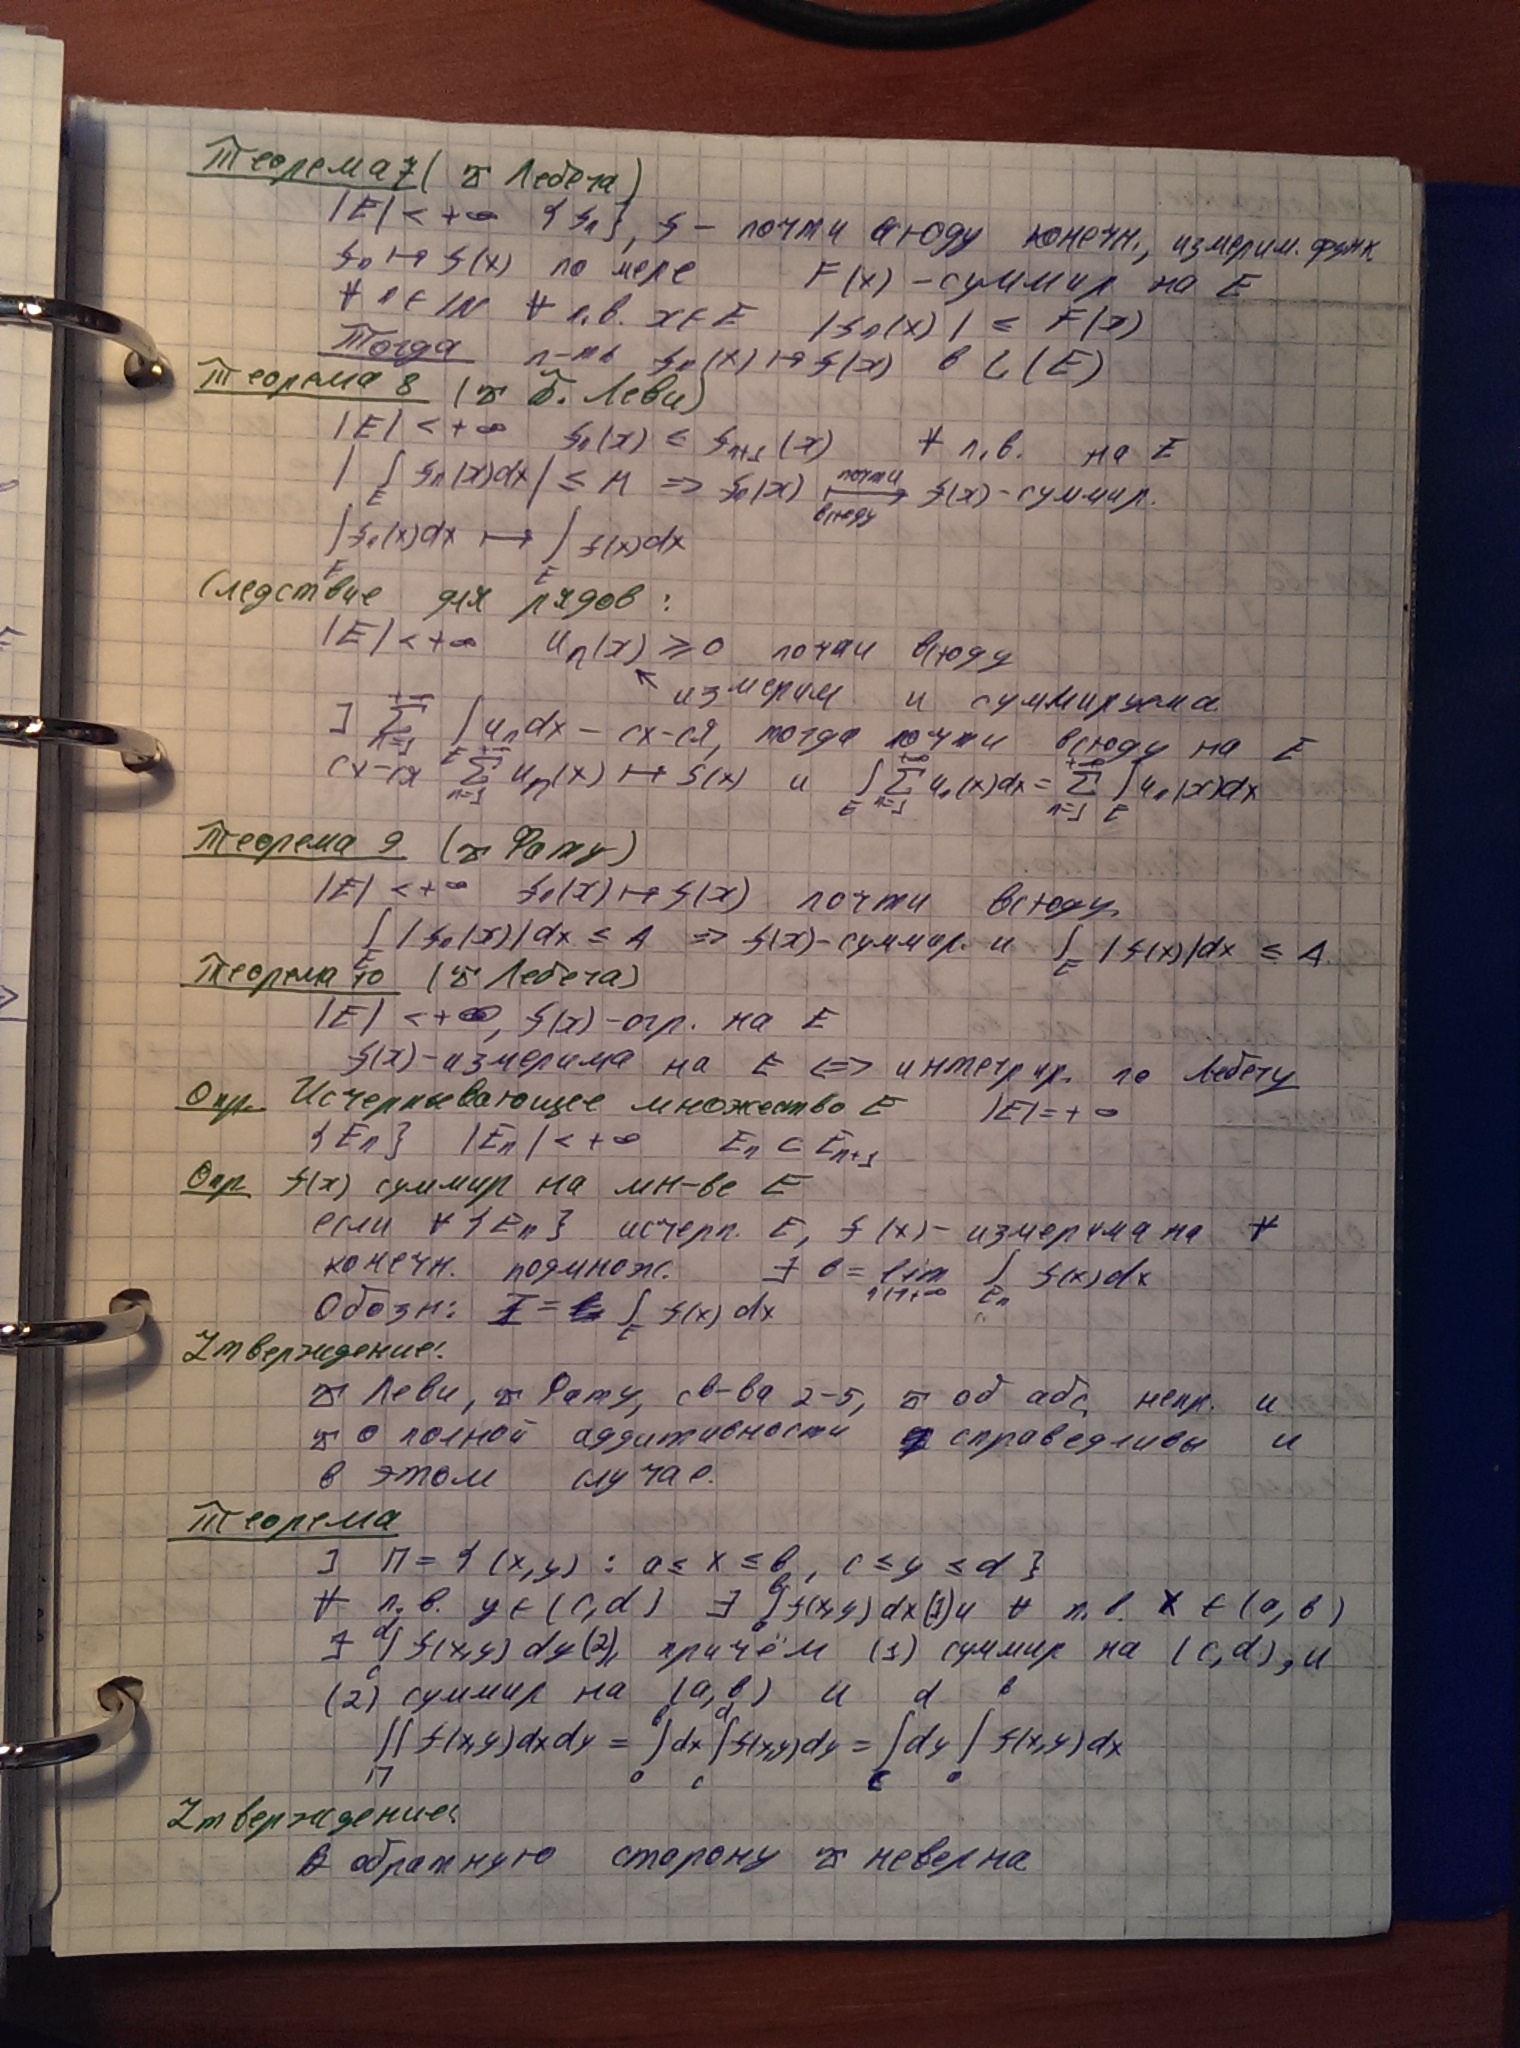 Теорема 7 (т Лебега)
|E| < +∞ {fn}, f – почти всюду конечн., измерим. функ
fn ↦ f(x) по мере F(x) – суммир на E
∀ n ∈ ℕ ∀ п.в. x ∈ E |fn(x)| ≤ F(x)
Тогда п-ть fn(x) ↦ f(x) в L(E)
Теорема 8 (т Б. Леви)
|E| < +∞ fn(x) ≤ fn+1(x) ∀ п.в. на E
|∫E fn(x)dx| ≤ M => fn(x) ↦ почти всюду f(x) – суммир.
∫E fn(x)dx ↦ ∫E f(x)dx
Следствие для рядов:
|E| < +∞ un(x) ≥ 0 почти всюду
измерим и суммируема
] ∑n=1+∞ ∫E un dx – сх-ся, тогда почти всюду на E
сх-ся ∑n=1+∞ un(x) ↦ f(x) и ∫E ∑n=1+∞ un(x)dx = ∑n=1+∞ ∫E un(x)dx
Теорема 9 (т Фату)
|E| < +∞ fn(x) ↦ f(x) почти всюду
∫E |fn(x)| dx ≤ A => f(x) – суммир. и ∫E |f(x)|dx ≤ A
Теорема 10 (т Лебега)
|E| < +∞, f(x) – огр. на E
f(x) – измерима на E <=> интегрир. по Лебегу
Опр. Исчерпывающее множество E |E| = +∞
{En} |En| < +∞ En ⊂ En+1
Опр. f(x) суммир на мн-ве E
если ∀ {En} исчерп. E, f(x) – измерима на ∀
конечн. подмнож. ∃ в = lim n↦+∞ ∫En f(x)dx
Обозн: I = ∫E f(x) dx
Утверждение:
т Леви, т Фату, св-ва 2-5, т об абс. непр. и
т о полной аддитивности справедливы и
в этом случае.
Теорема
] П = {(x,y) : a ≤ x ≤ b, c ≤ y ≤ d}
∀ п.в. y ∈ (c,d) ∃ ∫ab f(x,y) dx (1) и ∀ п.в. x ∈ (a,b)
∃ ∫cd f(x,y) dy (2), причём (1) суммир на (c,d), и
(2) суммир на (a,b) и
∬П f(x,y)dxdy = ∫ab dx ∫cd f(x,y)dy = ∫cd dy ∫ab f(x,y)dx
Утверждение:
В обратную сторону т неверна